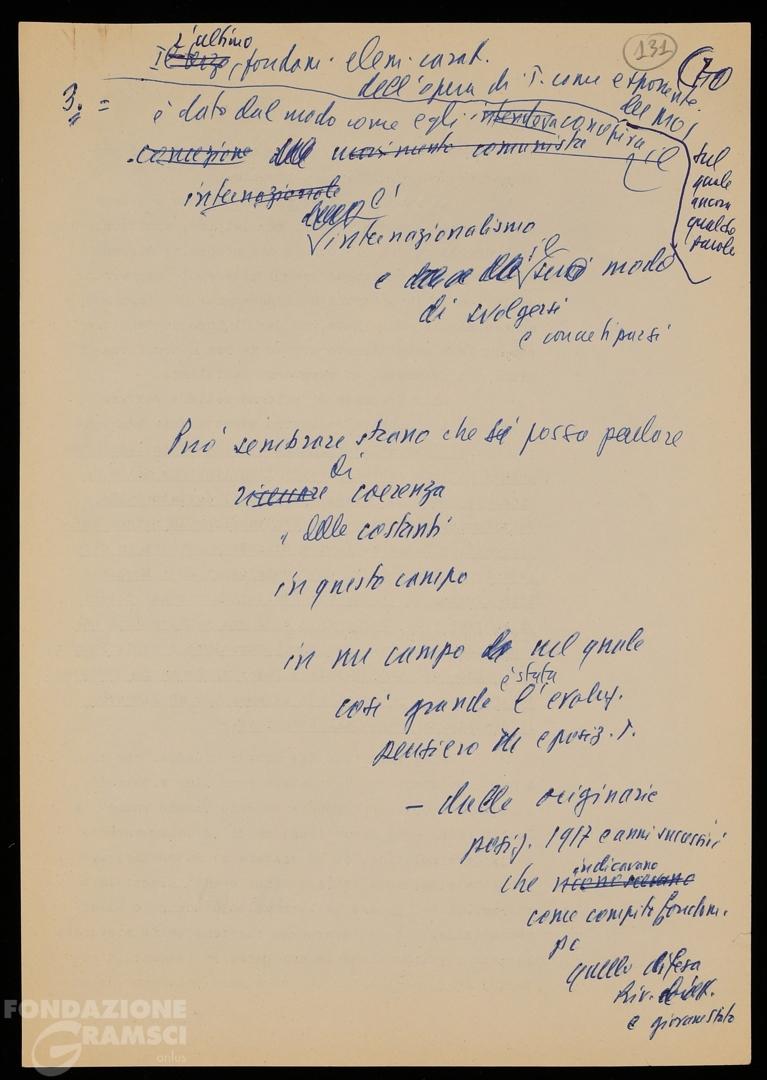 l'ultimo
Il terzo, fondam. elem. carat.
131
70
dell'opera di T. come esponente
del moi
3. =
è dato dal modo come egli intendeva concepiva il
concezione del movimento comunista
internazionale
sul
quale
ancora
qualche
parola
è
internazionalismo
e il suo modo
di svolgersi
e concretiparsi
Può sembrare strano che si possa parlare
di
ricercare coerenza
" delle costanti
in questo campo
in un campo nel quale
è stata
così grande l'evoluz.
pensiero e posiz. T.
- dalle originarie
posiz. 1917 e anni successivi
indicavano
che riconoscevano
come compito fondam.
pc
quello difesa
Riv. d'ott.
e giovane stato
FONDAZIONE
GRAMSCI
onlus